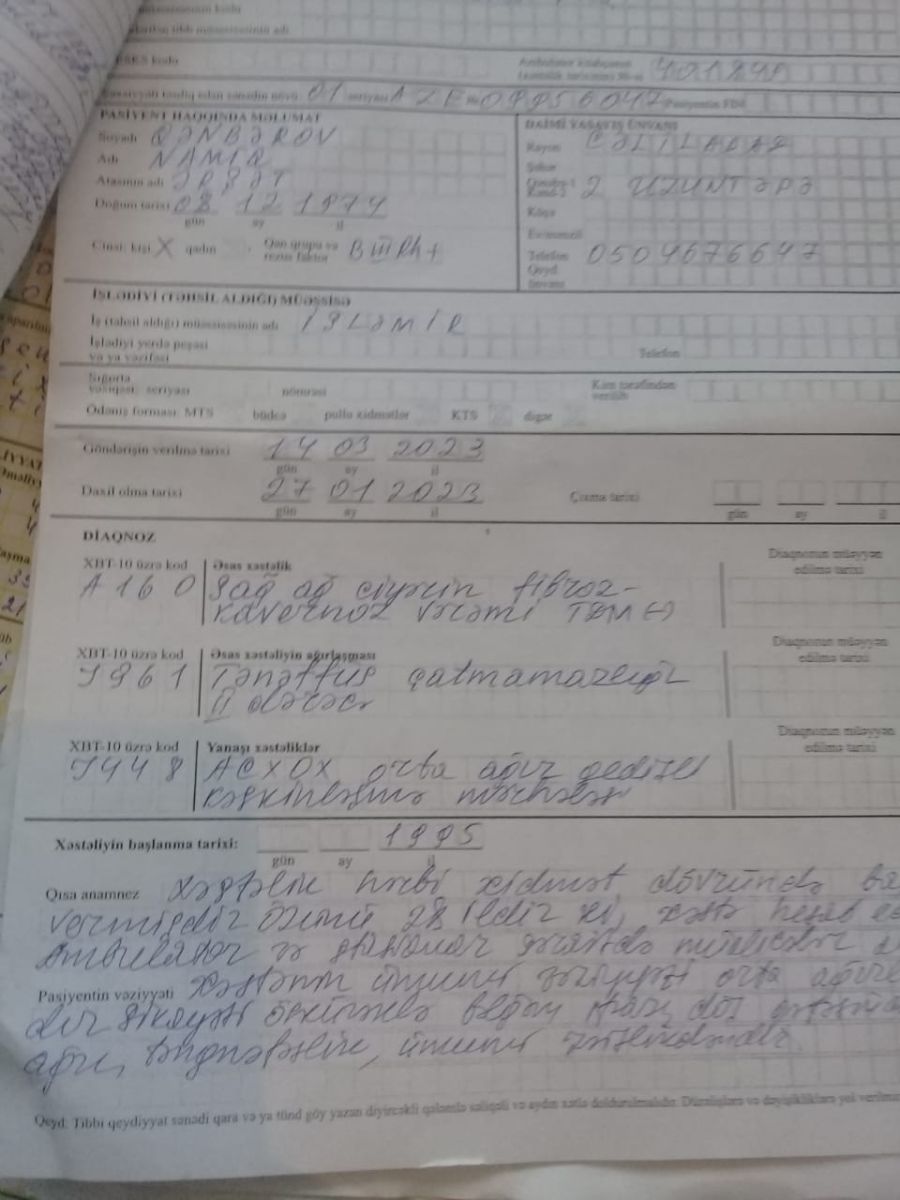 müəssisəsinin kodu
tibb müəssisəsinin adı
kodu Ambulator 401848
Şəxsiyyəti təsdiq edən sənədin növü 01 seriyası AZE № 09956047 Pasiyentin FİN
PASİYENT HAQQINDA MƏLUMAT
Soyadı QƏNBƏROV
Adı NAMİQ
Atasının adı ƏRŞƏT
Doğum tarixi 08 12 1974
gün ay il
Cinsi: kişi X qadın Qan qrupu və rezus faktor B III Rh+
DAİMİ YAŞAYIŞ ÜNVANI
Rayon CƏLİLABAD
Şəhər
Qəsəbə-1 Kənd-2 2 UZUNTƏPƏ
Küçə
Ev/mənzil
Telefon 0504676647
Qeyd
İŞLƏDİYİ (TƏHSİL ALDIĞI) MÜƏSSİSƏ
İş (təhsil aldığı) müəssisəsinin adı İŞLƏMİR
İşlədiyi yerdə peşəsi
və ya vəzifəsi Telefon
Sığorta
vəsiqəsi: seriyası nömrəsi Kim tərəfindən verilib
Ödəniş forması: MTS büdcə pullu xidmətlər KTS digər
Göndərişin verilmə tarixi 14 03 2023
gün ay il
Daxil olma tarixi 27 01 2023 Çıxma tarixi
gün ay il gün ay il
DİAQNOZ
XBT-10 üzrə kod Əsas xəstəlik Diaqnozun müəyyən edilmə tarixi
A160 Sağ ağ ciyərin fibroz-
kavernoz vərəmi TBM(-)
XBT-10 üzrə kod Əsas xəstəliyin ağırlaşması Diaqnozun müəyyən edilmə tarixi
J961 Tənəffüs çatmamazlığı
II dərəcə
XBT-10 üzrə kod Yanaşı xəstəliklər Diaqnozun müəyyən edilmə tarixi
J448 ACXOX orta ağır gedişli
kəskinləşmə mərhələsi
Xəstəliyin başlanma tarixi: 1995
gün ay il
Qısa anamnez xəstəlik hərbi xidmət dövründə
vermişdir özünü 28 ildir ki, xəstə hesab
Ambulator və stasionar şəraitdə müalicələr
Pasiyentin vəziyyəti xəstənin ümumi vəziyyəti orta ağır
dır şikayəti öskürəklə bəlğəm döş
ağrı, təngnəfəslik, ümumi zəiflikdəndir.
Qeyd: Tibbi qeydiyyat sənədi qara və ya tünd göy yazan diyircəkli qələmlə səliqəli və aydın xətlə doldurulmalıdır. Düzəlişlərə və dəyişikliklərə yol